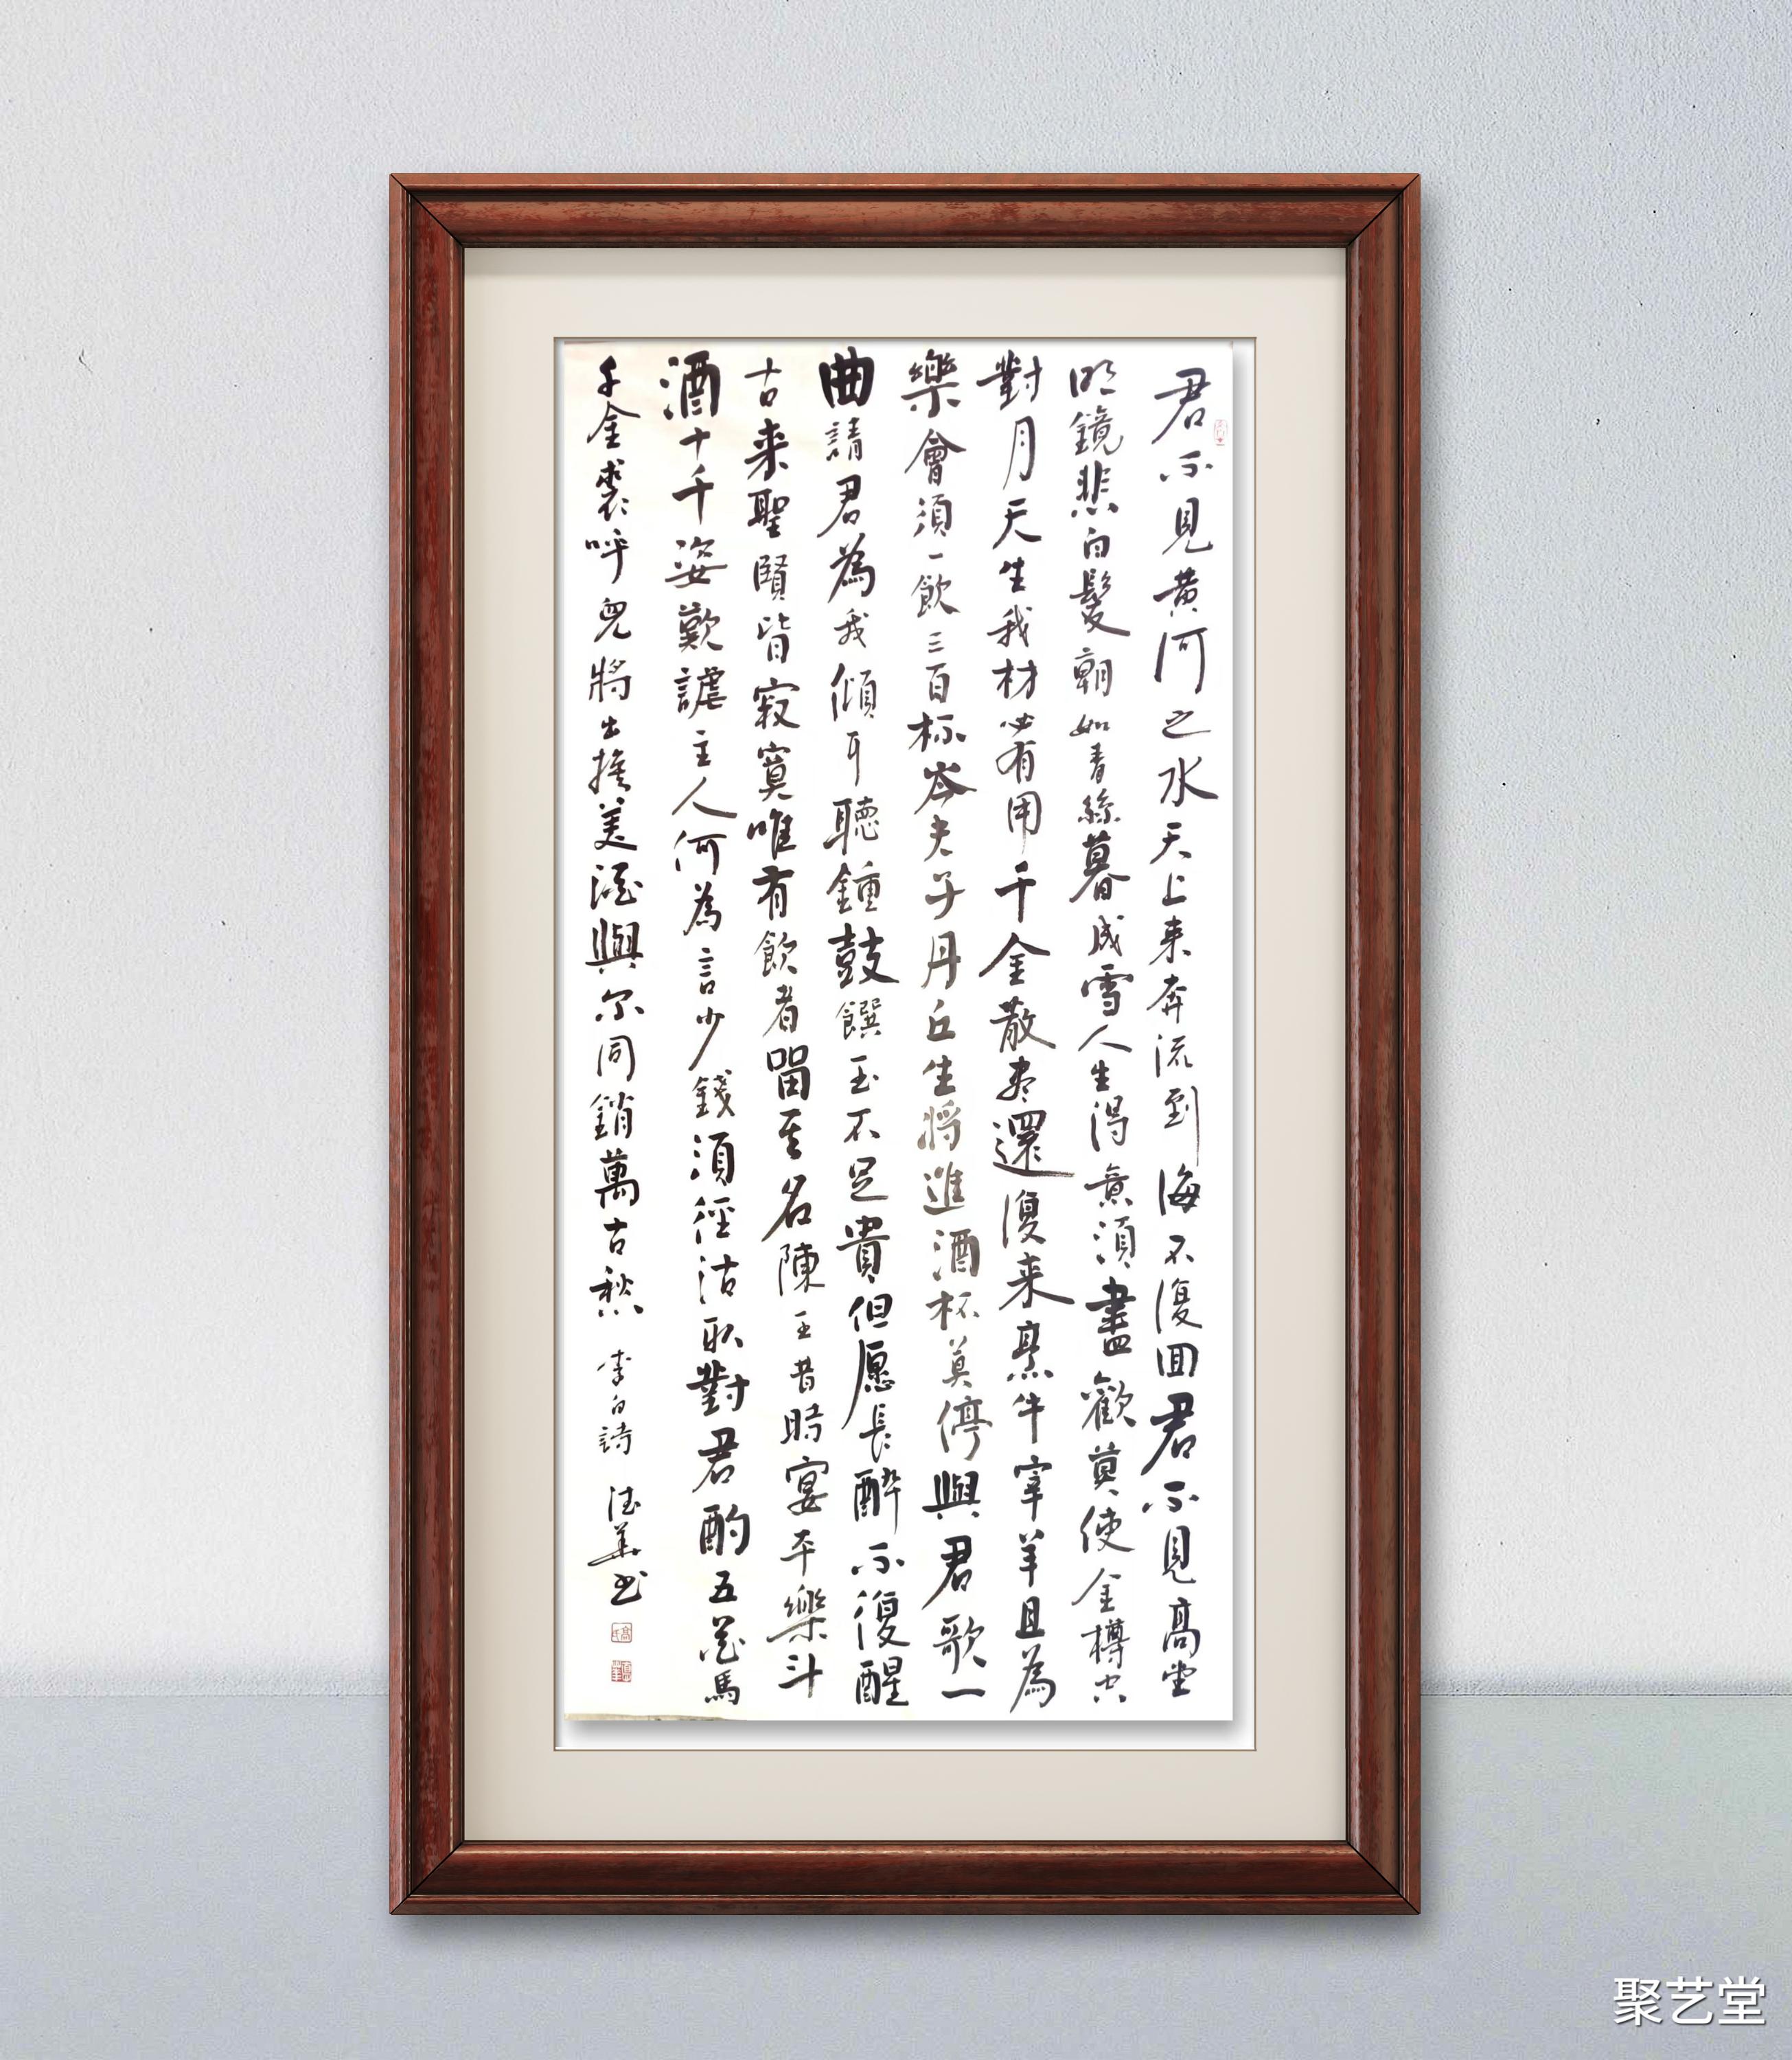 君不見黄河之水天上来奔流到海不復回君不見高堂
明鏡悲白髮朝如青絲暮成雪人生得意須盡歡莫使金樽空
對月天生我材必有用千金散尽還復来烹牛宰羊且為
樂會須一飲三百杯岑夫子丹丘生將進酒杯莫停與君歌一
曲請君為我傾耳聽鍾鼓饌玉不足貴但愿長醉不復醒
古来聖賢皆寂寞唯有飲者留其名陳王昔時宴平樂斗
酒十千姿歡謔主人何為言少錢須徑沽取對君酌五花馬
千金裘呼兒將出換美酒與尔同銷萬古愁 李白詩 德華书
聚艺堂